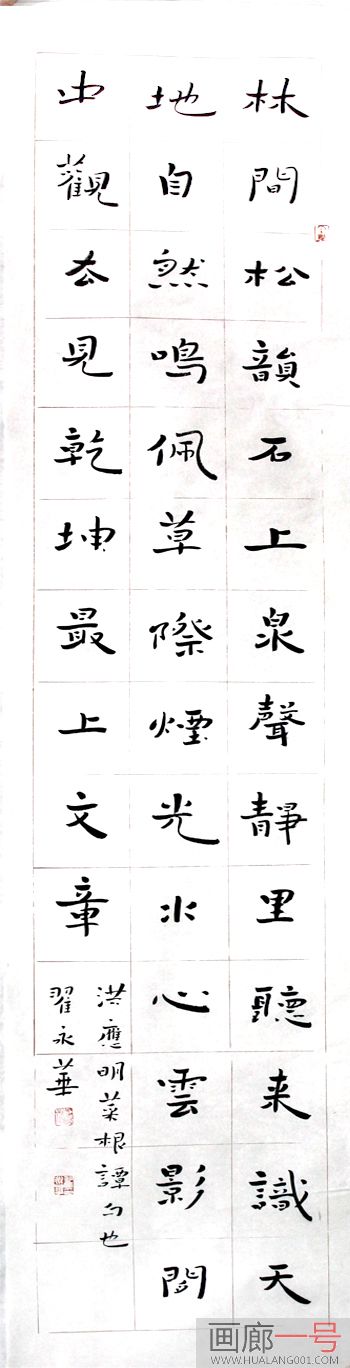 林間松韻石上泉聲靜里聽来識天
地自然鳴佩草際煙光水心雲影閒
中觀去見乾坤最上文章
洪應明菜根譚句也
翟永華
画廊一号
WWW.HUALANG001.COM